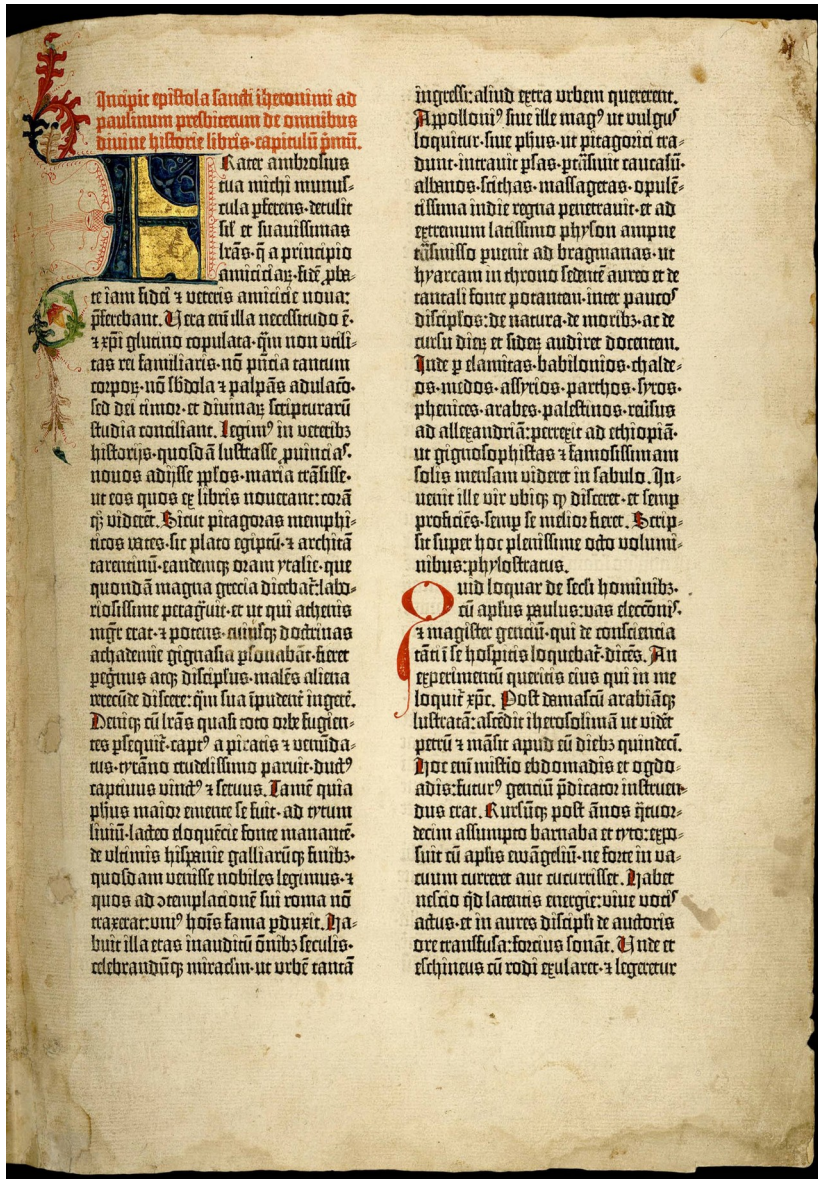 Incipit epistola sancti iheronimi ad
paulinum presbiterum de omnibus
divine historie libris·capitulū p̄mū.
Frater ambrosius
tua michi munus-
cula ꝑferens·detulit
sil̄ et suavissimas
lr̄as·q̄ a principio
amiciciaꝝ·fidē ꝓba-
te iam fidei ⁊ veteris amicicie nova:
p̄ferebant. Vera eni̅ illa necessitudo ē·
⁊ xp̄i glutino copulata·qm̄ non utili-
tas rei familiaris·nō pn̄cia tantum
corpoꝝ·nō sb̄dola ⁊ palpās adulacō·
sed dei timor·et divinaꝝ scripturarū
studia conciliant. Legimꝰ in veteribꝫ
historijs·quosdā lustrasse ꝓvincias·
novos adijsse ppl̄os·maria trāsisse·
ut eos quos ex libris noverant: corā
qꝫ viderēt. Sicut pitagoras memphi-
ticos vates·sic plato egiptū·⁊ architā
tarentinū·eandemqꝫ oram ytalie·que
quondā magna grecia dicebat̄: labo-
riosissime peragͣvit·et ut qui athenis
mgr̄ erat·⁊ potens·cuiusqꝫ doctrinas
achademie gignasia ꝑsonabāt·fieret
peg̓nus atqꝫ discipl̄us·malēs aliena
verecūde discere: qm̄ sua īpudent̓ ingere̅.
Deniqꝫ cū lr̄as quasi toto orbe fugien-
tes ꝑsequit̄·captꝰ a piratis ⁊ venūda-
tus·tyrāno crudelissimo paruit·ductꝰ
captivus vinctꝰ ⁊ servus. Tamē quia
ph̄us maior emente se fuit·ad tytum
liviū·lacteo eloquēcie fonte manantē·
de ultimis hispanie galliarūqꝫ finibꝫ·
quosdam venisse nobiles legimus·⁊
quos ad ꝯtemplacionē sui roma nō
traxerat: uniꝰ hoīs fama ꝑduxit. Ha-
buit illa etas inauditū ōnibꝫ seculis·
celebrandūqꝫ miracl̄m·ut urbē tantā
ingressi: aliud extra urbem quererent.
Appolloniꝰ sive ille magꝰ ut vulgus
loquitur·sive ph̄us·ut pitagorici tra-
dunt·intravit ꝑsas·ꝑtāsivit caucasū·
albanos·scithas·massagetas·opulē-
tissima indie regna penetravit·et ad
extremum latissimo physon ampne
tāsmisso ꝑvenit ad bragmanas·ut
hyarcam in throno sedentē aureo et de
tantali fonte potantem·inter paucos
discipl̄os: de natura·de moribꝫ·ac de
cursu dieꝝ et sideꝝ audiret docentem.
Inde ꝑ elamitas·babilonios·chalde-
os·medos·assyrios·parthos·syros·
phenices·arabes·palestinos·reu̓sus
ad allexandriā: perrexit ad ethiopiā·
ut gignosophistas ⁊ famosissimam
solis mensam videret in sabulo. In-
venit ille vir ubiqꝫ qꝫ disceret·et semꝑ
proficiēs·semꝑ se melior fieret. Scrip-
sit super hoc plenissime octo volumi-
nibus: phylostratus.
Quid loquar de secli hominibꝫ·
cū apl̄us paulus: vas eleccōnis·
⁊ magister genciū·qui de consciencia
tāti ī se hospitis loquebat̄·dicēs. An
experimentū queritis eius qui in me
loquit̄ xp̄c. Post damascū arabiāqꝫ
lustratā: ascēdit iherosolimā ut videt̓
petrū ⁊ māsit apud eū diebꝫ quindecī.
Hoc eni̅ mistio ebdomadis et ogdo-
adis: futurꝰ genciū p̄dicator instruen-
dus erat. Rursūqꝫ post ānos q̄tuor-
decim assumpto barnaba et tyto: expo-
suit cū apl̄is ewāgeliū·ne forte in va-
cuum curreret aut cucurrisset. Habet
nescio qd̄ latentis energie: vive vocis
actus·et in aures discipl̄i de auctoris
ore transfusa: forcius sonāt. Unde et
eschineus cū rodi exularet·⁊ legeretur